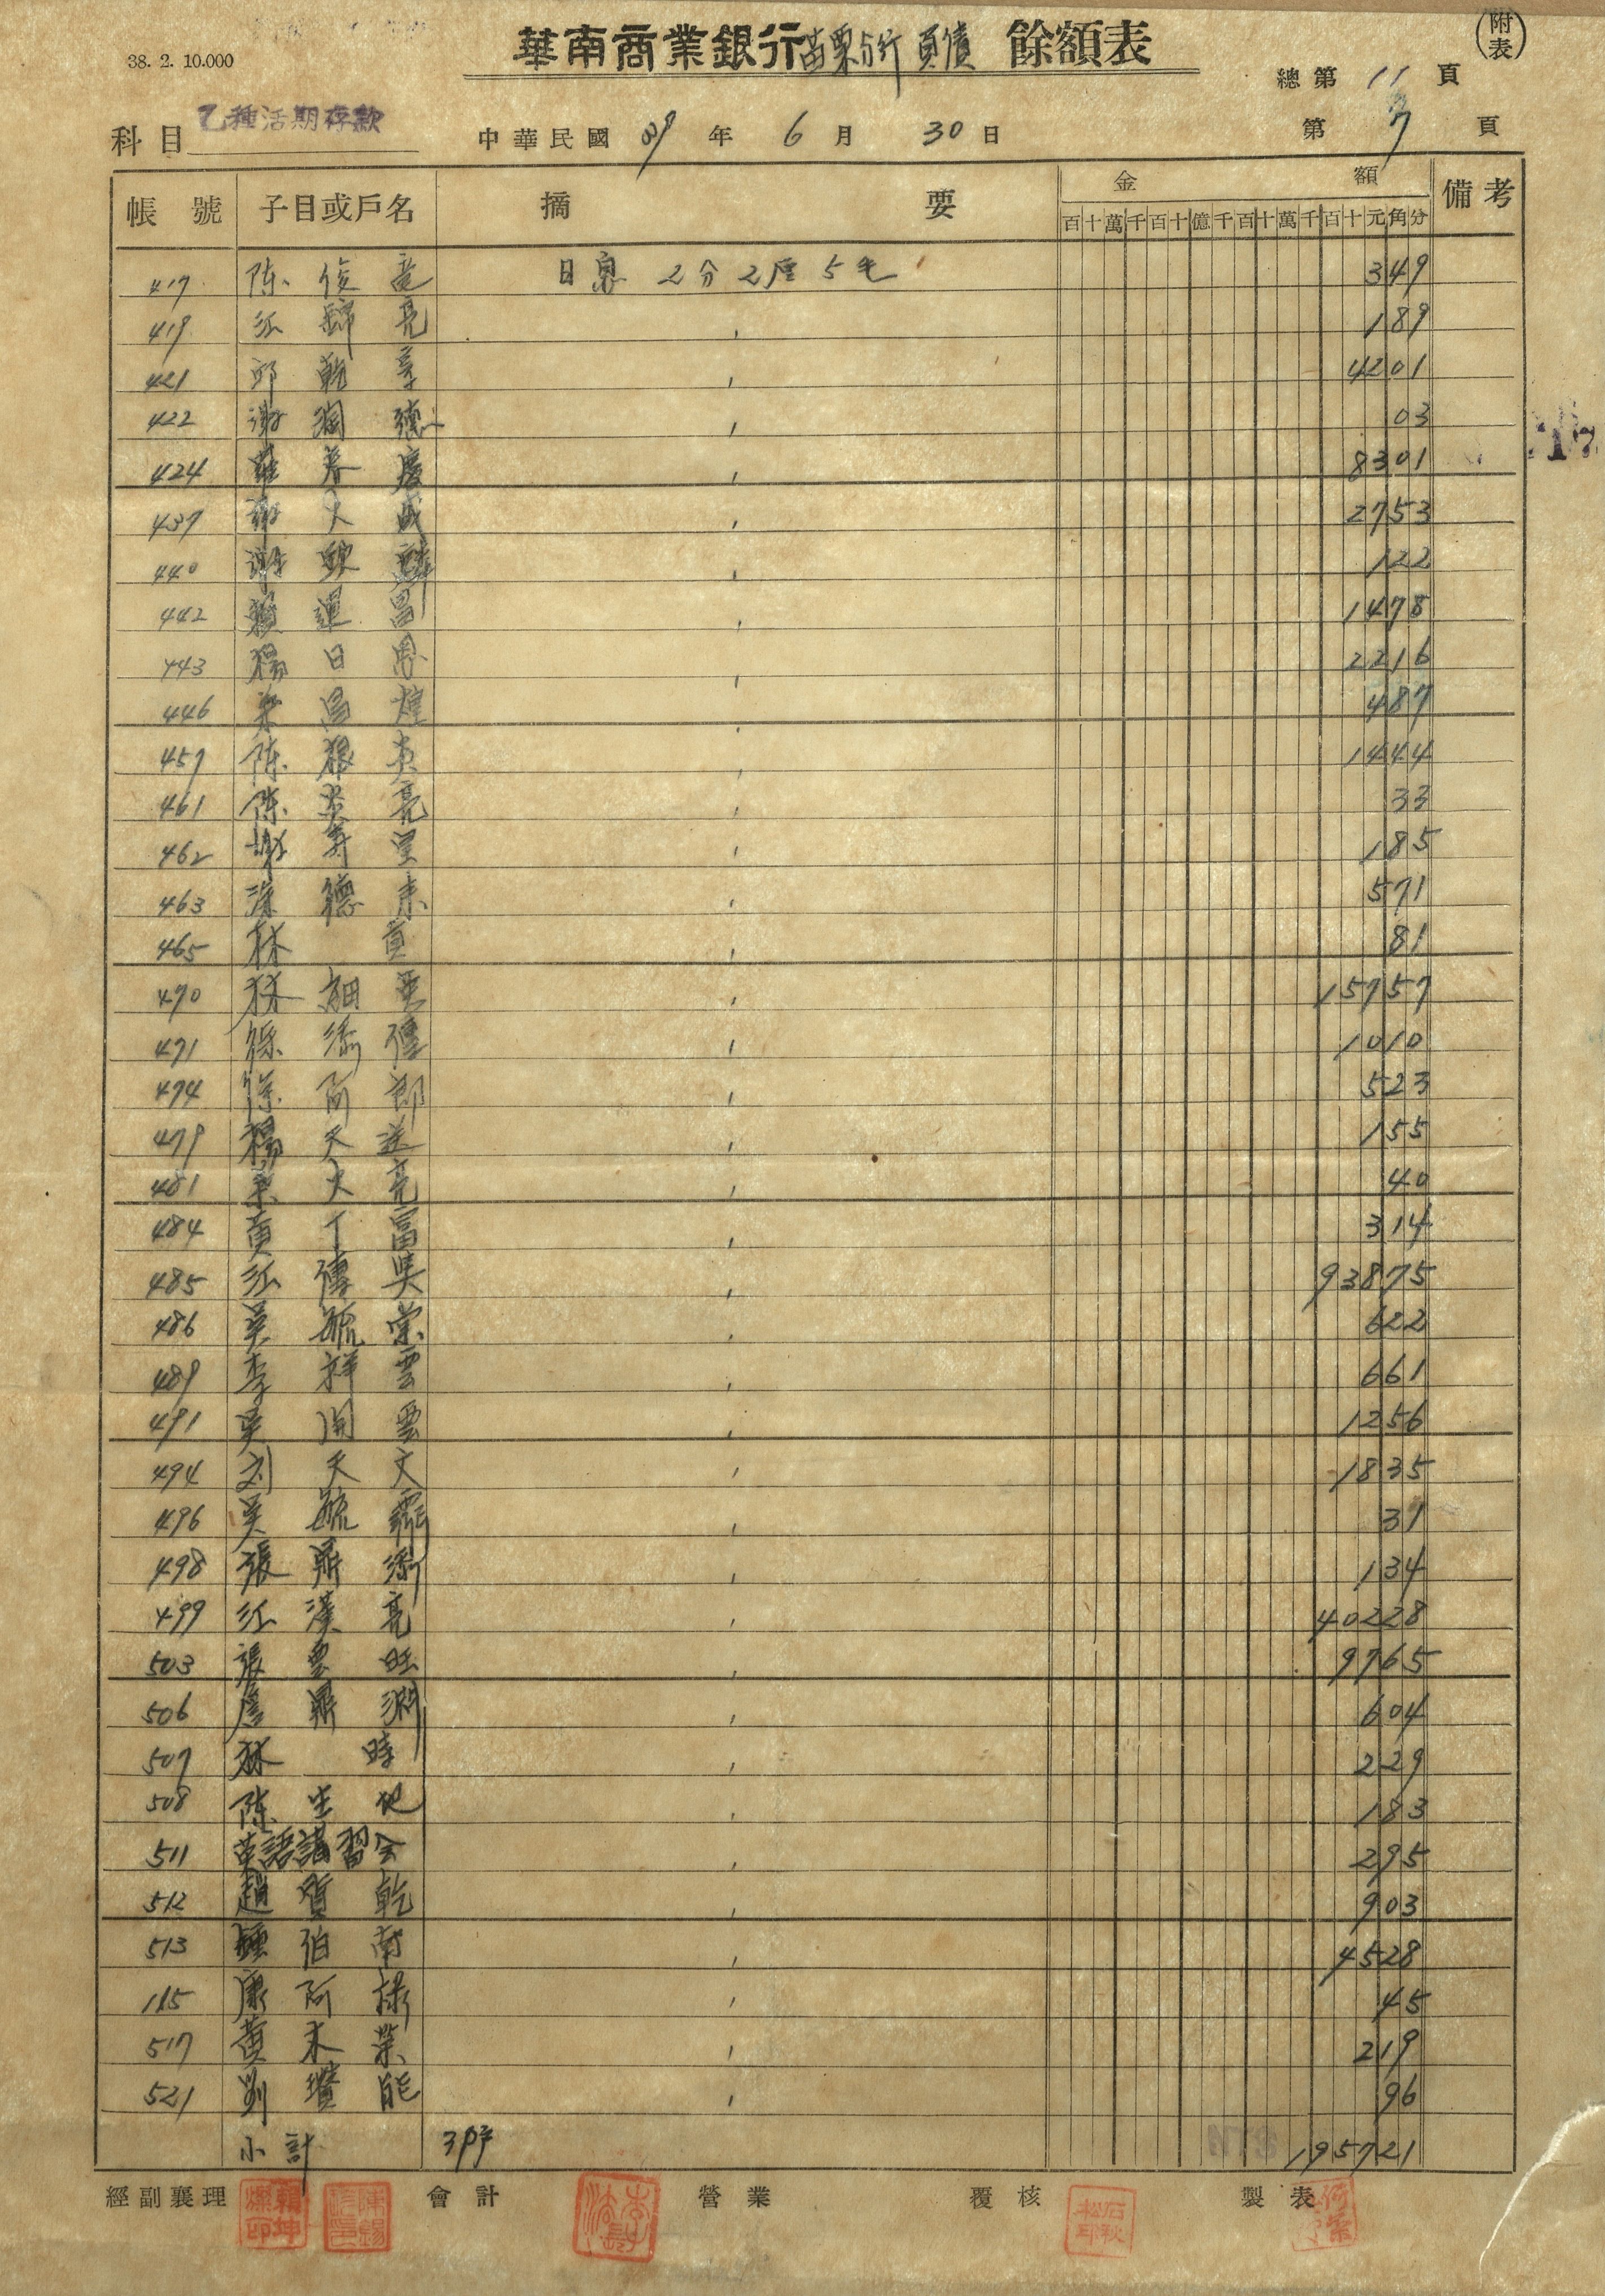 38. 2. 10.000
華南商業銀行苗栗分行 負債 餘額表
(附表)
總第 11 頁
科目 乙種活期存款
中華民國 39 年 6 月 30 日
第 7 頁
帳號 子目或戶名 摘要 金額 備考
百十萬千百十億千百十萬千百十元角分
417 陈俊 日息 2分2厘5毛 349
419 江錦亮 〃 189
421 邱乾 〃 4201
422 謝潤德 〃 03
424 羅春慶 〃 8301
437 謝火盛 〃 2753
440 謝欽麟 〃 122
442 賴運昌 〃 1478
443 楊日恩 〃 2216
446 宋昌煌 〃 487
457 陈狠英 〃 1444
461 陈炎亮 〃 33
462 謝壽星 〃 185
463 涂德未 〃 571
465 林 〃 81
470 林細 〃 15757
471 徐添傳 〃 1010
474 徐阿郎 〃 523
479 楊天送 〃 155
481 葉火亮 〃 40
484 黄丁富 〃 314
485 江傳吳 〃 93875
486 吳毓棠 〃 622
489 李祥雲 〃 661
491 吳開雲 〃 1256
494 刘天文 〃 1835
496 吳毓 〃 31
498 張鼎添 〃 134
499 江漢亮 〃 40228
503 張雲旺 〃 9765
506 詹鼎渊 〃 604
507 林時 〃 229
508 陈生地 〃 183
511 英語講習会 〃 295
512 趙質乾 〃 903
513 鍾伯南 〃 4528
115 康阿祿 〃 45
517 黄木榮 〃 219
521 劉瓚能 〃 96
小計 39户 195721
經副襄理 會計 營業 覆核 製表